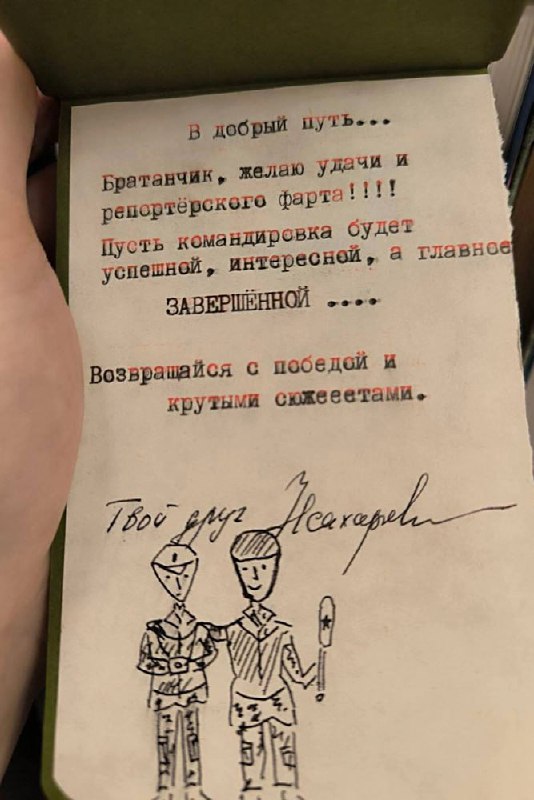 В добрый путь...
Братанчик, желаю удачи и
репортёрского фарта!!!!
Пусть командировка будет
успешной, интересной, а главное
ЗАВЕРШЁННОЙ ....
Возвращайся с победой и
крутыми сюжееетами.
Твой друг